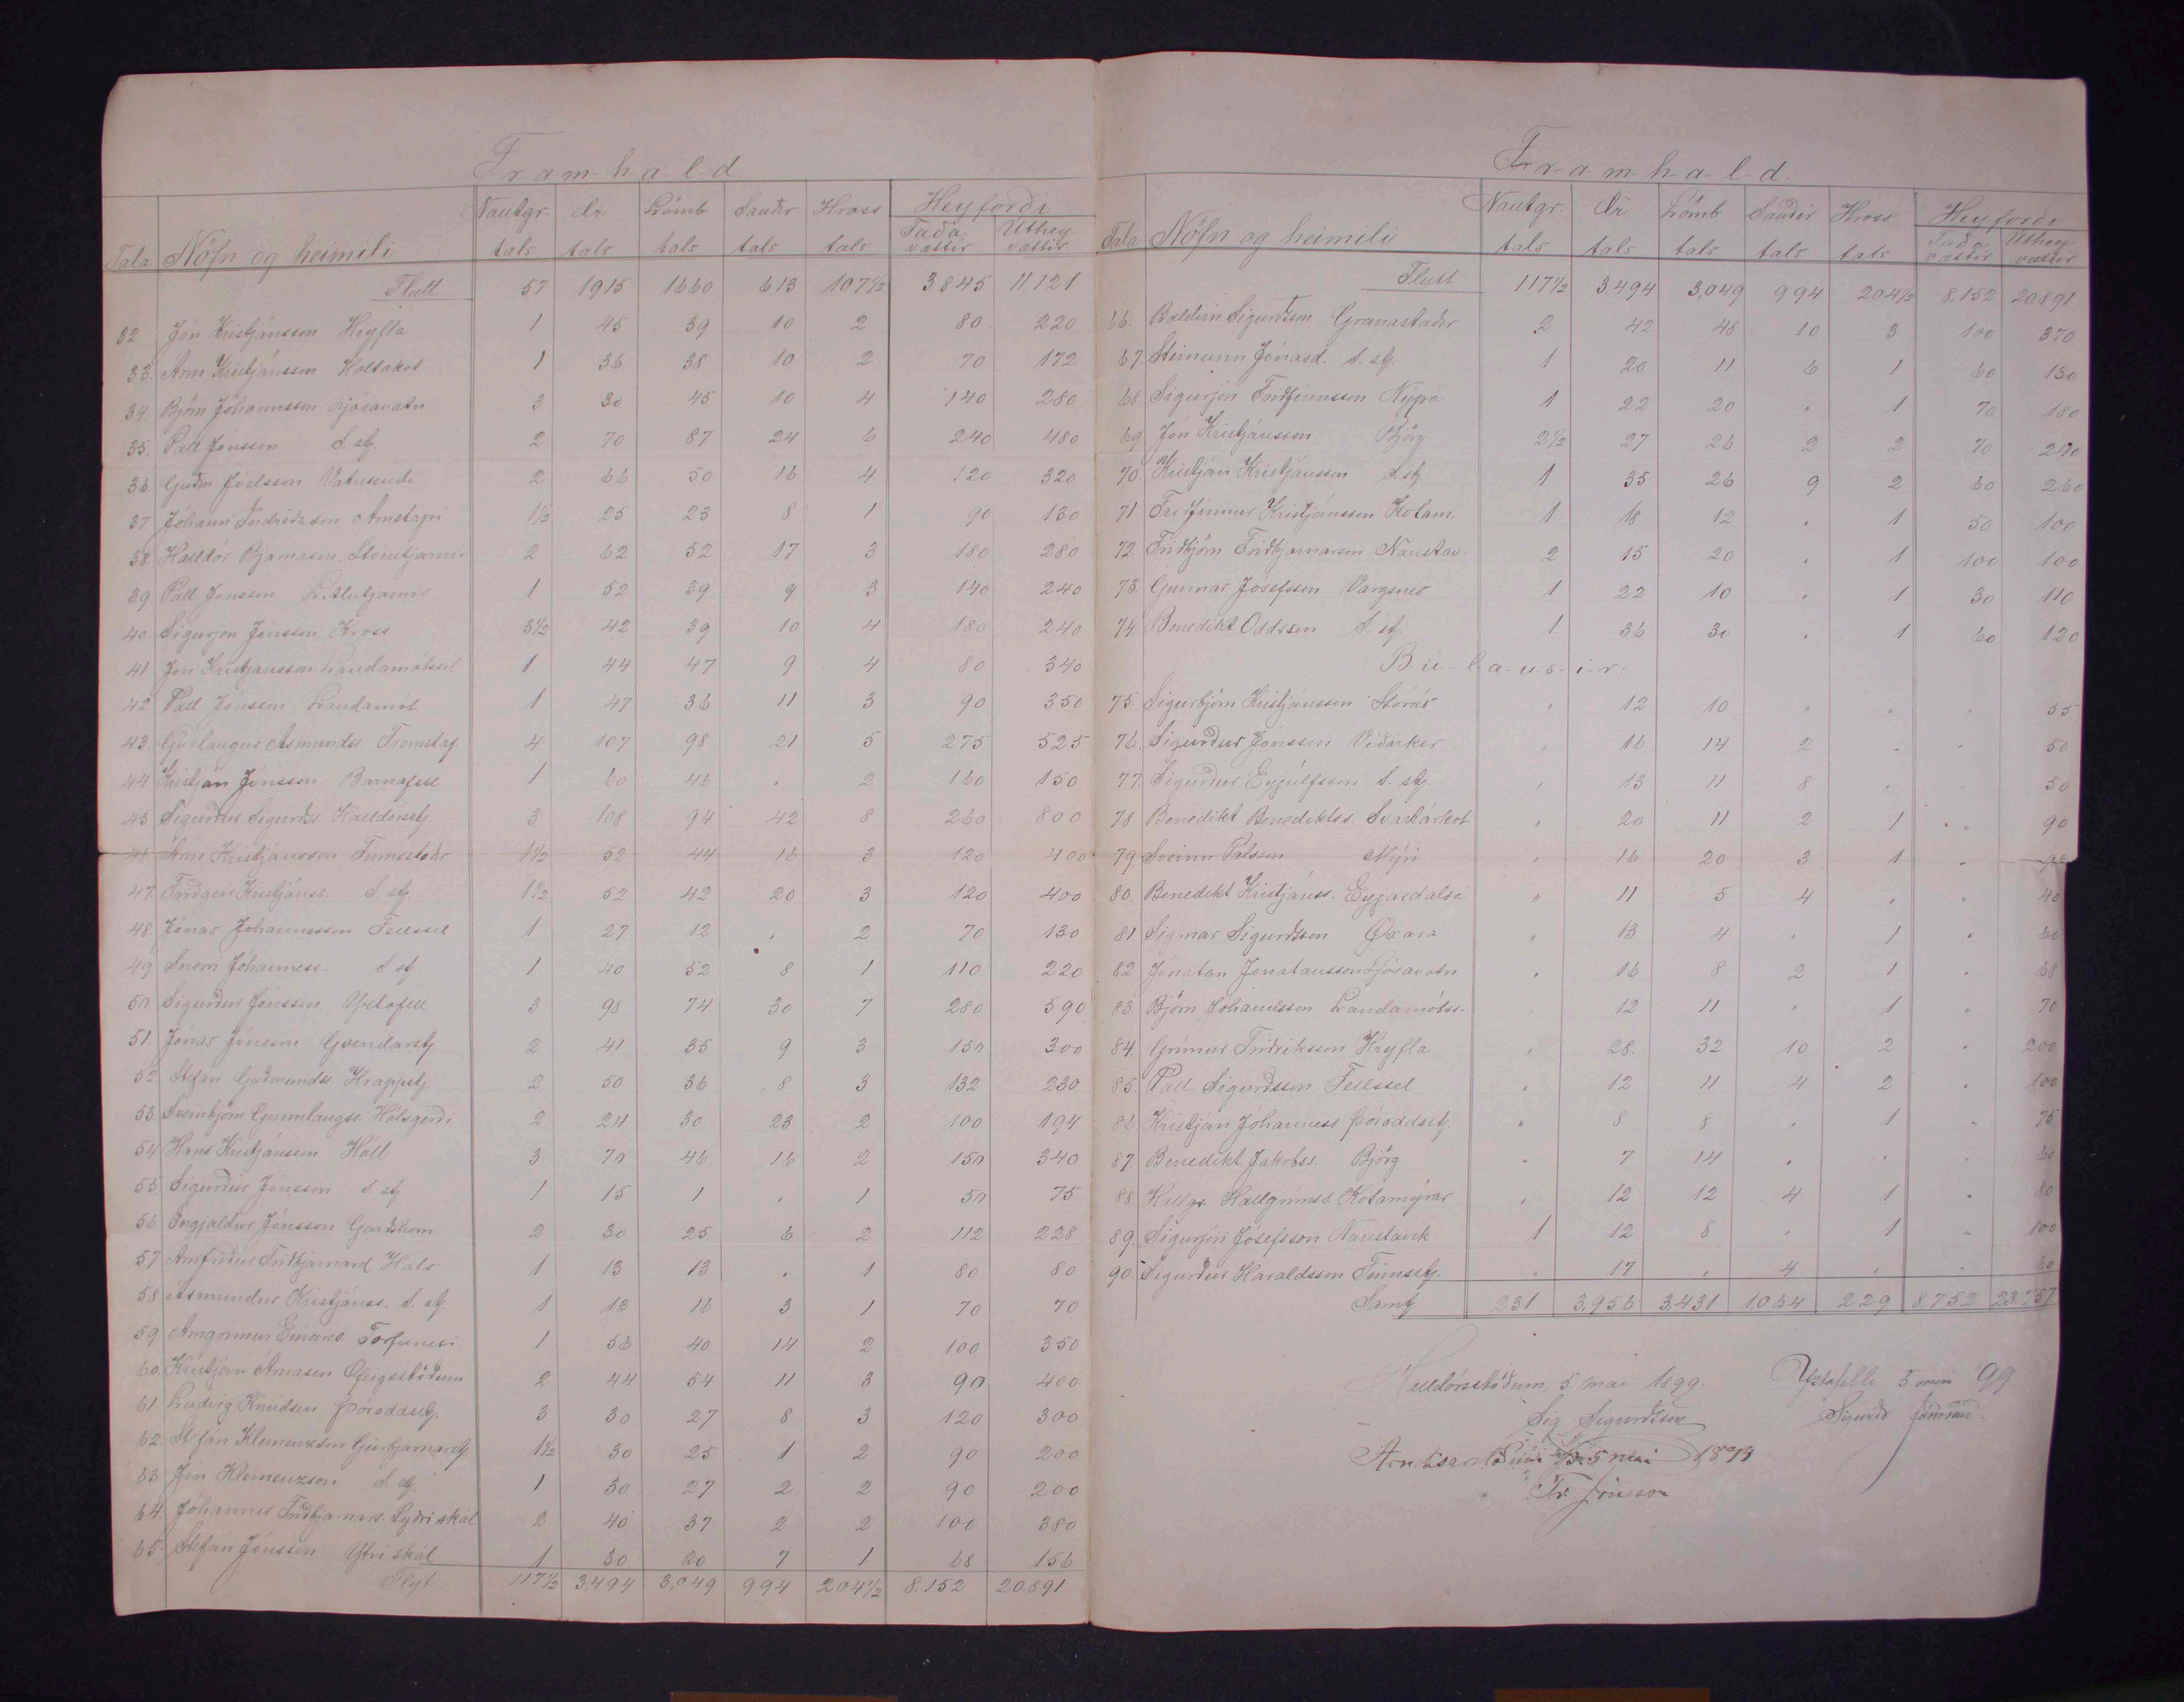 Framhald
Tala Nöfn og heimili Nautgr. tals Ær tals Lömb tals Sauðir tals Hross tals Heyforði Taða vættir Úthey vættir
Flutt 57 1915 1660 613 107½ 3.845 11121
32. Jón Kristjánsson Hryfla 1 45 39 10 2 80. 220
33. Árni Kristjánsson Holtakot 1 36 38 10 2 70 172
34. Björn Jóhannsson Ljósavatn 3 30 45 10 4 140 280
35. Páll Jónsson S. st. 2 70 87 24 6 240 480
36 Guðm. Jóelsson Vatnsendi 2 66 50 16 4 120 320
37 Jóhann Indriðason Arnstapi 1½ 25 23 8 1 90 130
38. Halldór Bjarnason Stórutjarnir 2 62 52 17 3 180 280
39 Páll Jónsson Litlutjarnir 1 52 39 9 3 140 240
40. Sigurjón Jónsson Kross 3½ 42 39 10 4 180 240
41. Jón Kristjánsson Landamótssel 1 44 47 9 4 80 340
42 Páll Jónsson Landamót 1 47 36 11 3 90 350
43 Guðlaugur Ásmunds. Fremstaf. 4 107 98 21 5 275 525
44. Kristján Jónsson Barnafell 1 60 46 . 2 160 150
45 Sigurður Sigurðs. Halldórsst. 3 108 94 42 8 260 800
46. Árni Kristjánsson Finnsstaðir 1½ 52 44 16 3 120 400
47. Friðgeir Kristjánss. S. st. 1½ 52 42 20 3 120 400
48. Jónas Jóhannesson Fellssel 1 27 12 . 2 70 130
49 Snorri Jóhanness. S. st. 1 40 52 8 1 110 220
50 Sigurður Jónsson Yztafell 3 98 74 30 7 280 590
51. Jónas Jónsson Gvendarst. 2 41 35 9 3 150 300
52 Stefán Guðmundss. Hrappst. 2 50 36 8 3 132 230
53 Sveinbjörn Gunnlaugss. Hólsgerði 2 24 30 23 2 100 194
54 Hans Kristjánsson Hóll 3 70 46 16 2 150 340
55. Sigurður Jónsson S. st. 1 15 1 . 1 50 75
56 Ingjaldur Jónsson Garðshorn 2 30 25 6 2 112 228
57 Arnfríður Friðbjarnard Háls 1 13 13 . 1 80 80
58 Ásmundur Kristjánss. S. st. 1 13 16 3 1 70 70
59 Arngrímur Einarss. Torfunesi 1 56 40 14 2 100 350
60. Kristján Árnason Ófeigsstöðum 2 44 54 11 3 90 400
61 Lúðvig Knudsen Þóroddsst. 3 30 27 8 3 120 300
62 Stefán Klemenzson Guðbjarnarst. 1½ 30 25 1 2 90 200
63. Jón Klemenzson S. st. 1 30 27 2 2 90 200
64. Jóhannes Friðbjarnars. Syðri skál 2 40 37 2 2 100 380
65 Stefán Jónsson Ytri skál 1 30 20 7 1 68 156
Flyt 117½ 3.494 3,049 994 204½ 8.152 20891
Framhald.
Tala Nöfn og heimili Nautgr. tals Ær tals Lömb tals Sauðir tals Hross tals Heyforði Taða vættir Úthey vættir
Flutt 117½ 3.494 3,049 994 204½ 8.152 20891
66. Baldvin Sigurðsson Granastaðir 2 42 48 10 3 100 370
67. Steinunn Jónasd. S. st. 1 20 11 6 1 60 130
68 Sigurjón Friðfinnsson Nýpá 1 22 20 . 1 70 180
69 Jón Kristjánsson Björg 2½ 27 26 2 2 70 270
70 Kristján Kristjánsson S. st. 1 35 26 9 2 60 260
71. Friðfinnur Kristjánsson Kotam. 1 18 12 . 1 50 100
72 Friðbjörn Friðbjarnarson Naustav. 2 15 20 . 1 100 100
73. Gunnar Jósefsson Vargsnes 1 22 10 . 1 30 110
74. Benedikt Oddsson S. st. 1. 36 30 . 1 60 120
Búlausir:
75. Sigurbjörn Kristjánsson Stórás . 12 10 . . . 55
76. Sigurður Jónsson Víðirker . 16 14 2 . . 50
77. Sigurður Eyjúlfsson S. st. . 13 11 8 . . 50
78 Benedikt Benediktss. Svartárkot . 20 11 2 1 . 90
79 Sveinn Pálsson Mýri . 16 20 3 1 .
80. Benedikt Kristjánss. Eyjardalsá " 11 5 4 . . 40
81 Sigmar Sigurðsson Öxará " 13 4 . 1 . 60
82 Jónatan Jónatansson Ljósavatn . 16 8 2 1 . 68
83. Björn Jóhannsson Landamótss. . 12 11 . 1 . 70
84. Grímur Friðriksson Hryfla . 28. 32 10 2 . 200
85. Páll Sigurðsson Fellssel . 12 11 4 2 . 100
86. Kristján Jóhanness Þóroddsst. . 8 8 . 1 . 75
87. Benedikt Jakobss. Björg . 7 14 . . . 60
88 Hallgr. Hallgrímss. Kotamýrar . 12 12 4 1 . 80
89. Sigurjón Jósefsson Naustavík 1 12 8 . 1 . 100
90 Sigurður Haraldsson Finnsst. . 17 . 4 . . 60
Samt. 231 3,956 3,431 1.064 229 8752 23.757
Halldórsstöðum, 5. maí 1899.
Sig. Sigurðsson
Yztafelli 5 maí '99
Sigurðr Jónsson.
Arndísarstöðum p. 5 maí 1899
Fr. Jónsson